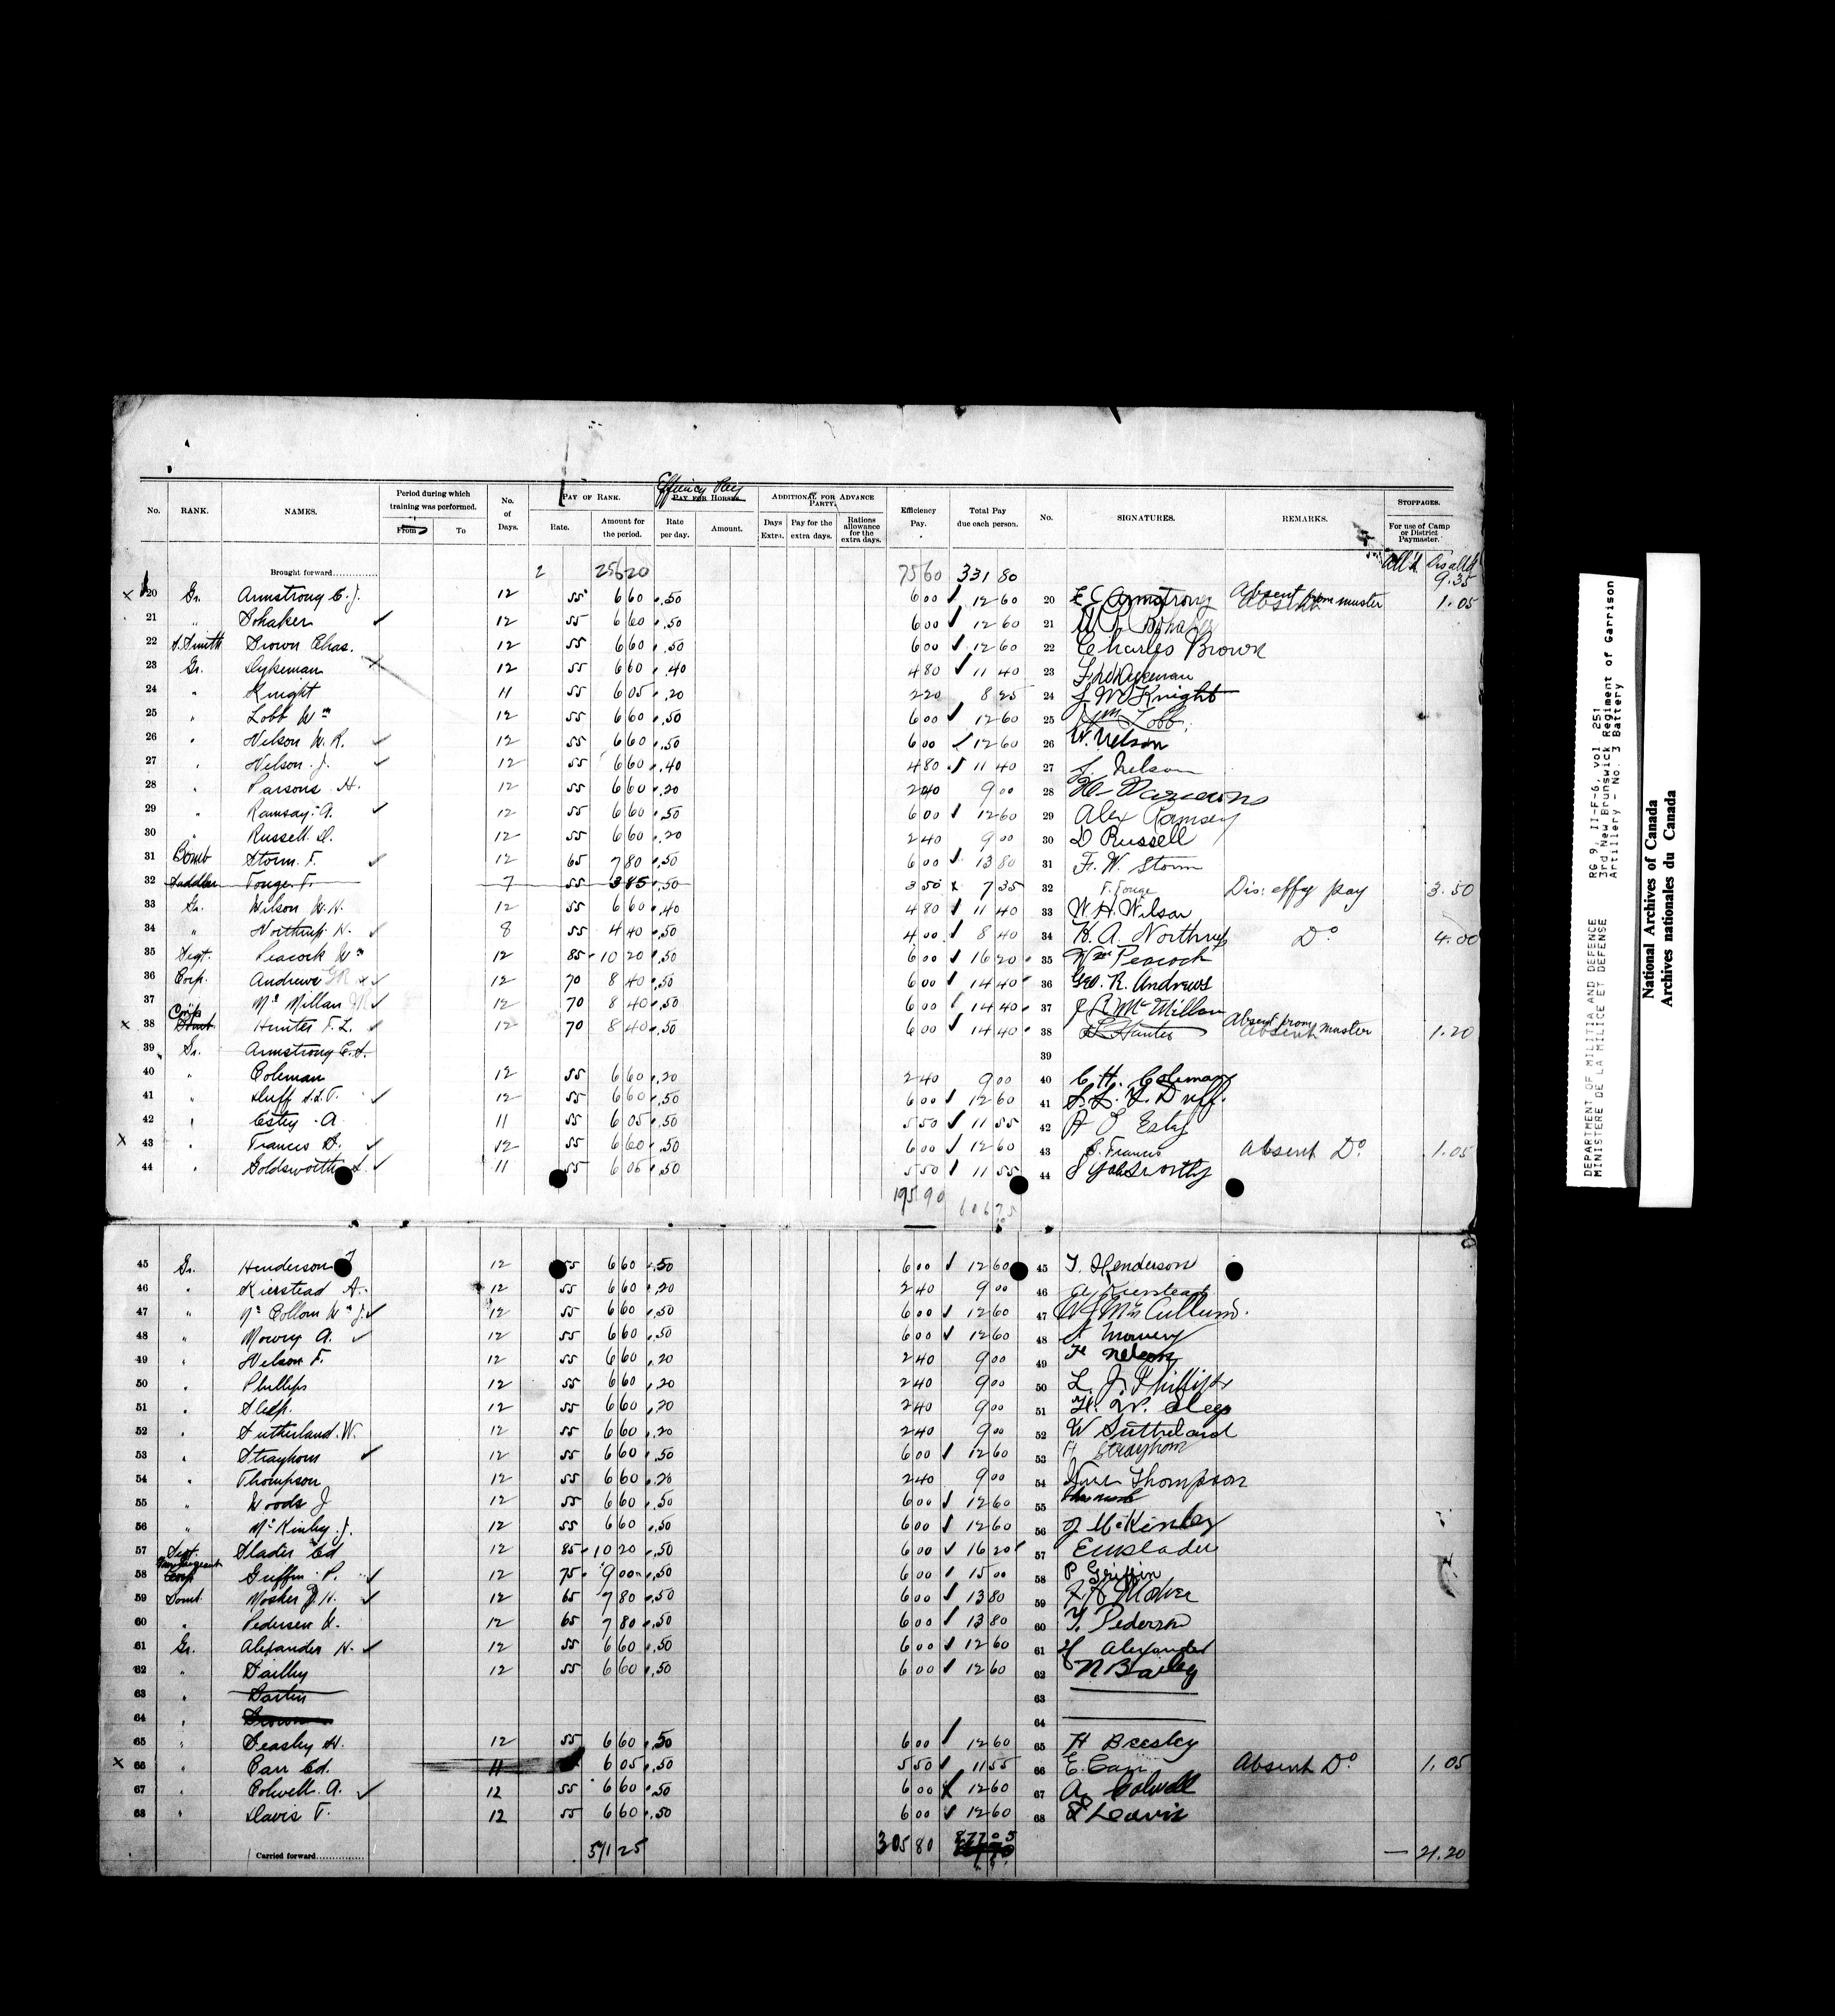 Effiency Pay
No. RANK. NAMES. Period during which training was performed. From To No. of Days. PAY OF RANK. Rate. Amount for the period. PAY FOR HORSES Rate per day. Amount. ADDITIONAL FOR ADVANCE PARTY. Days Extra. Pay for the extra days. Rations allowance for the extra days. Efficiency Pay. Total Pay due each person. No. SIGNATURES. REMARKS. STOPPAGES. For use of Camp or District Paymaster.
All'd Disall'd
Brought forward 2 256 20 75 60 331 80 9.35
x 20 Gr. Armstrong C. J. 12 55 6 60 .50 6 00 12 60 20 E C Armstrong Absent from muster 1.05
21 " Bohaker 12 55 6 60 .50 6 00 12 60 21 Bohaker
22 S. Smith Brown Chas. 12 55 6 60 .50 6 00 12 60 22 Charles Brown
23 Gr. Dykeman 12 55 6 60 .40 4 80 11 40 23 Dykeman
24 " Knight 11 55 6 05 .20 2 20 8 25 24 J M Knight
25 " Lobb Wm 12 55 6 60 .50 6 00 12 60 25 Wm Lobb
26 " Nelson W. R. 12 55 6 60 .50 6 00 12 60 26 W. Nelson
27 " Nelson J. 12 55 6 60 .40 4 80 11 40 27 J. Nelson
28 " Parsons H. 12 55 6 60 .20 2 40 9 00 28 H Parsons
29 " Ramsay A. 12 55 6 60 .50 6 00 12 60 29 Alex Ramsey
30 " Russell D. 12 55 6 60 .20 2 40 9 00 30 D Russell
31 Bomb Storm F. 12 65 7 80 .50 6 00 13 80 31 F. W. Storm
32 Saddler Touge F. 7 55 3 85 .50 3 50 x 7 35 32 F. Touge Dis. effy pay 3.50
33 Gr. Wilson W. H. 12 55 6 60 .40 4 80 11 40 33 W. H. Wilson
34 " Northrup H. 8 55 4 40 .50 4 00 8 40 34 H. A. Northrup Do 4.00
35 Sergt. Peacock Wm 12 85 10 20 .50 6 00 16 20 35 Wm Peacock
36 Corp. Andrews G R 12 70 8 40 .50 6 00 14 40 36 Geo. R. Andrews
37 Corp McMillan J R 12 70 8 40 .50 6 00 14 40 37 J R McMillan
x 38 Bomb. Hunter F. L. 12 70 8 40 .50 6 00 14 40 38 Hunter Absent from muster 1.20
39 Gr. Armstrong C. S. 39
40 " Coleman 12 55 6 60 .20 2 40 9 00 40 C. H. Coleman
41 " Duff S. L. T. 12 55 6 60 .50 6 00 12 60 41 S. L. T. Duff
42 " Estey A. 11 55 6 05 .50 5 50 11 55 42 A Esty
x 43 " Frances S. 12 55 6 60 .50 6 00 12 60 43 S. Francis Absent Do 1.05
44 " Goldsworthy 11 55 6 05 .50 5 50 11 55 44 Goldsworthy
195 90 606 75
45 Gr. Henderson 12 55 6 60 .50 6 00 12 60 45 T. Henderson
46 " Kierstead A. 12 55 6 60 .20 2 40 9 00 46 A Kierstead
47 " Mc Collom Wm J. 12 55 6 60 .50 6 00 12 60 47 W J Mc Cullum
48 " Mowry A. 12 55 6 60 .50 6 00 12 60 48 A Mowery
49 " Nelson F. 12 55 6 60 .20 2 40 9 00 49 F Nelson
50 " Phillips 12 55 6 60 .20 2 40 9 00 50 L. J. Phillips
51 " Slep. 12 55 6 60 .20 2 40 9 00 51 H. W. Slep
52 " Sutherland. W. 12 55 6 60 .20 2 40 9 00 52 W Sutherland
53 " Strayhorn 12 55 6 60 .50 6 00 12 60 53 Strayhorn
54 " Thompson 12 55 6 60 .20 2 40 9 00 54 Thompson
55 " Woods J 12 55 6 60 .50 6 00 12 60 55
56 " McKinley J. 12 55 6 60 .50 6 00 12 60 56 J McKinley
57 Sergt. Slader Ed 12 85 10 20 .50 6 00 16 20 57 Slader
58 Corp Griffin P. 12 75 9 00 .50 6 00 15 00 58 P Griffin
59 Bomb. Mosher J. H. 12 65 7 80 .50 6 00 13 80 59
60 " Pedersen 12 65 7 80 .50 6 00 13 80 60 Pederson
61 Gr. Alexander H. 12 55 6 60 .50 6 00 12 60 61 H Alexander
62 " Bailley 12 55 6 60 .50 6 00 12 60 62 N Bailey
63 " 63
64 " Brown 64
65 " Beasley H. 12 55 6 60 .50 6 00 12 60 65 H Beesley
x 66 " Carr Ed. 11 6 05 .50 5 50 11 55 66 E. Carr Absent Do 1.05
67 " Colwell A. 12 55 6 60 .50 6 00 12 60 67 A. Colwell
68 " Davis F. 12 55 6 60 .50 6 00 12 60 68 Davis
Carried forward 571 25 305 80 877 05 — 21.20
DEPARTMENT OF MILITIA AND DEFENCE RG 9, II-F-6, vol 251
MINISTERE DE LA MILICE ET DEFENSE 3rd New Brunswick Regiment of Garrison
Artillery - No. 3 Battery
National Archives of Canada
Archives nationales du Canada